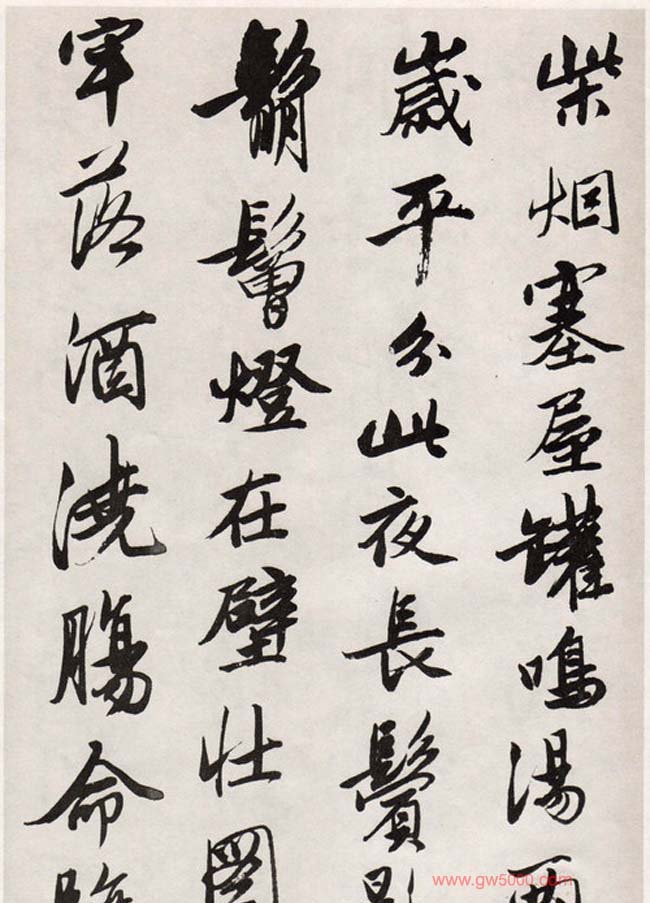 柴烟塞屋罐鳴湯兩
歲平分此夜長鬢影
鬅鬙燈在壁壯圖
牢落酒澆腸命臨
www.gw5000.com